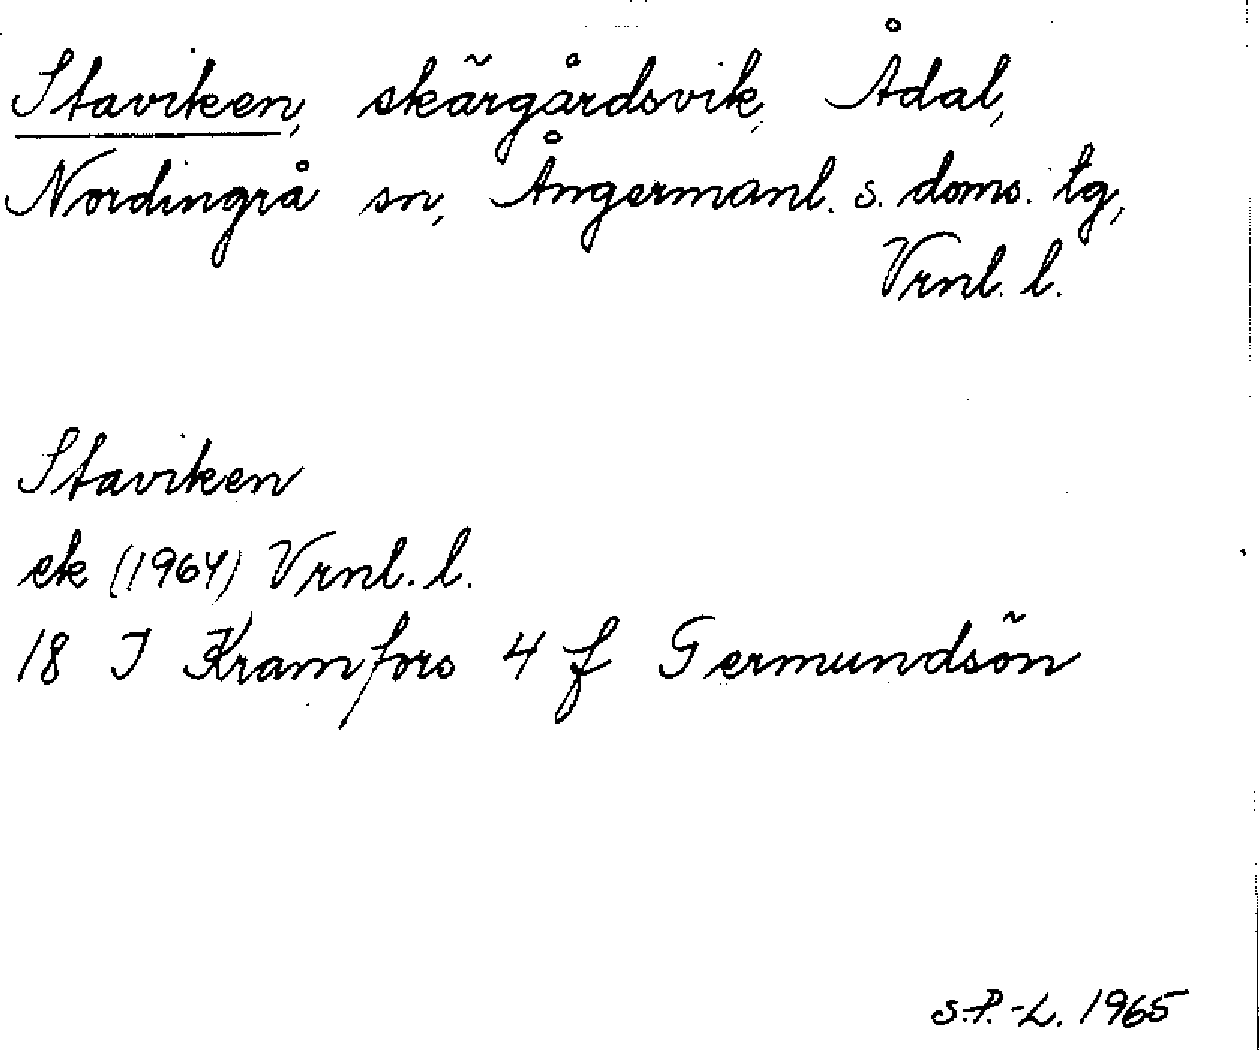 Staviken, skärgårdsvik, Ådal,
Nordingrå sn, Ångermanl. s. doms. tg,
Vrnl. l.
Staviken
ek (1964) Vrnl. l.
18 I Kramfors 4 f Germundsön
S.P.-L. 1965